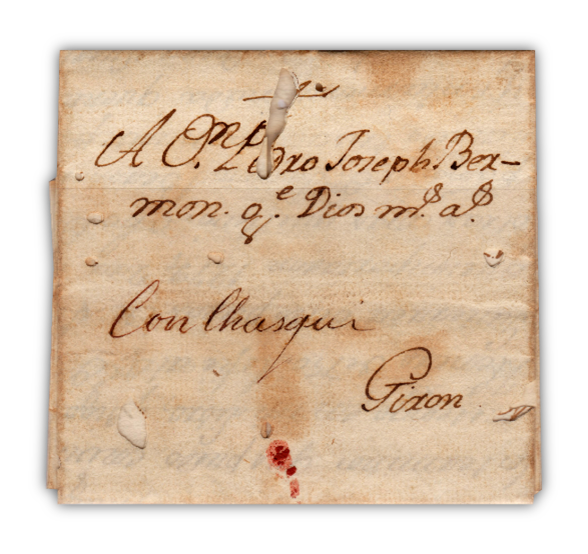 A Dn. Pedro Joseph Ber-
mon. qe. Dios ms. as.
Con Chasqui
Giron